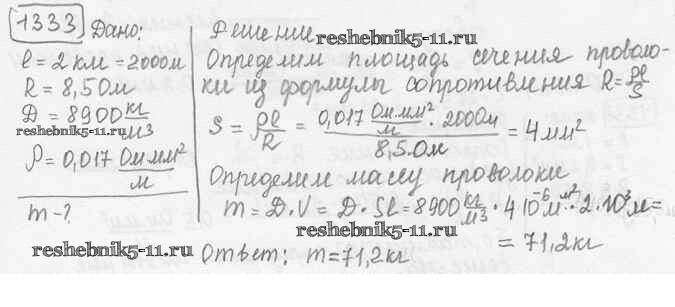 1333 Дано:
l = 2 км = 2000м
R = 8,5 Ом
D = 8900 кг/м3
reshebnik5-11.ru
ρ = 0,017 Ом мм²/м
m - ?
reshebnik5-11.ru
Решение
reshebnik5-11.ru
Определим площадь сечения проволо-
ки из формулы сопротивления R = ρl/S
S = ρl/R = 0,017 Ом мм²/м · 2000м / 8,5 Ом = 4 мм²
Определим массу проволоки
m = D·V = D·Sl = 8900 кг/м3 · 4 10⁻⁶ м² · 2·10³ м =
= 71,2 кг
reshebnik5-11.ru
Ответ: m = 71,2 кг